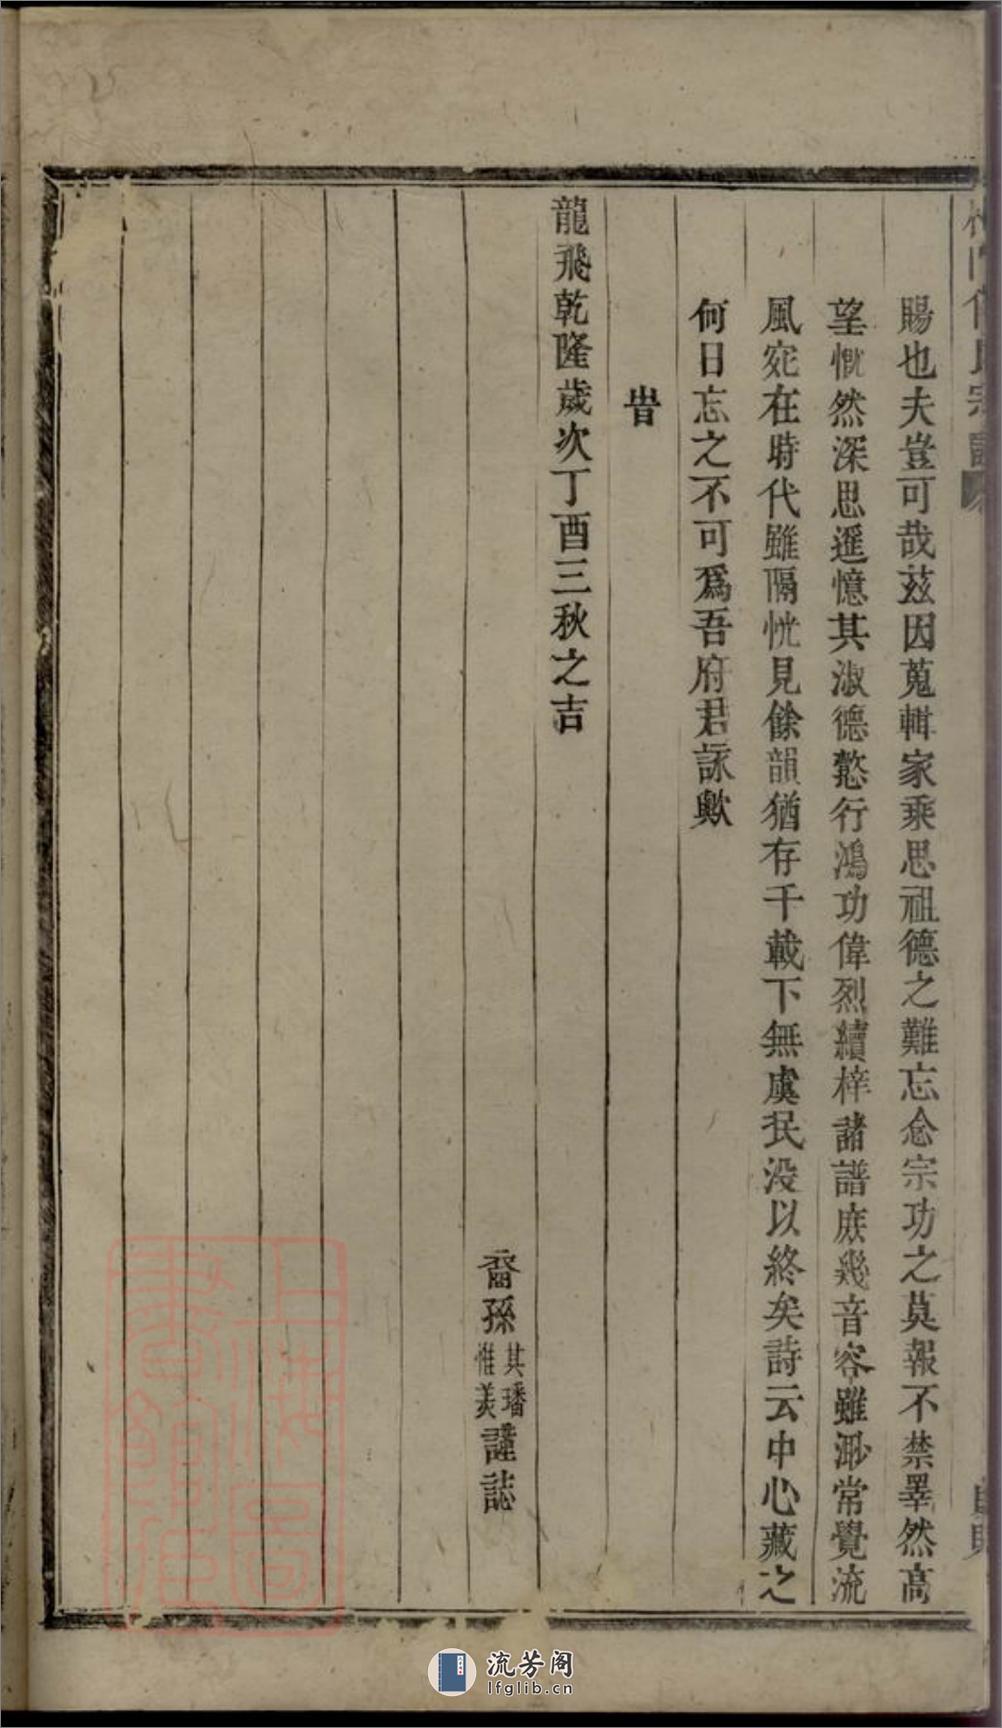 賜也夫豈可哉茲因蒐輯家乘思祖德之難忘念宗功之莫報不禁睪然高
望慨然深思遥憶其淑德懿行鴻功偉烈續梓諸譜庻幾音容雖渺常覺流
風宛在時代雖隔恍見餘韻猶存千載下無虞㳯没以終矣詩云中心藏之
何日忘之不可爲吾府君詠歟
旹
龍飛乾隆歲次丁酉三秋之吉
裔孫
其璠
惟美
謹誌
上海圖
書館藏
流芳阁
lfglib.cn